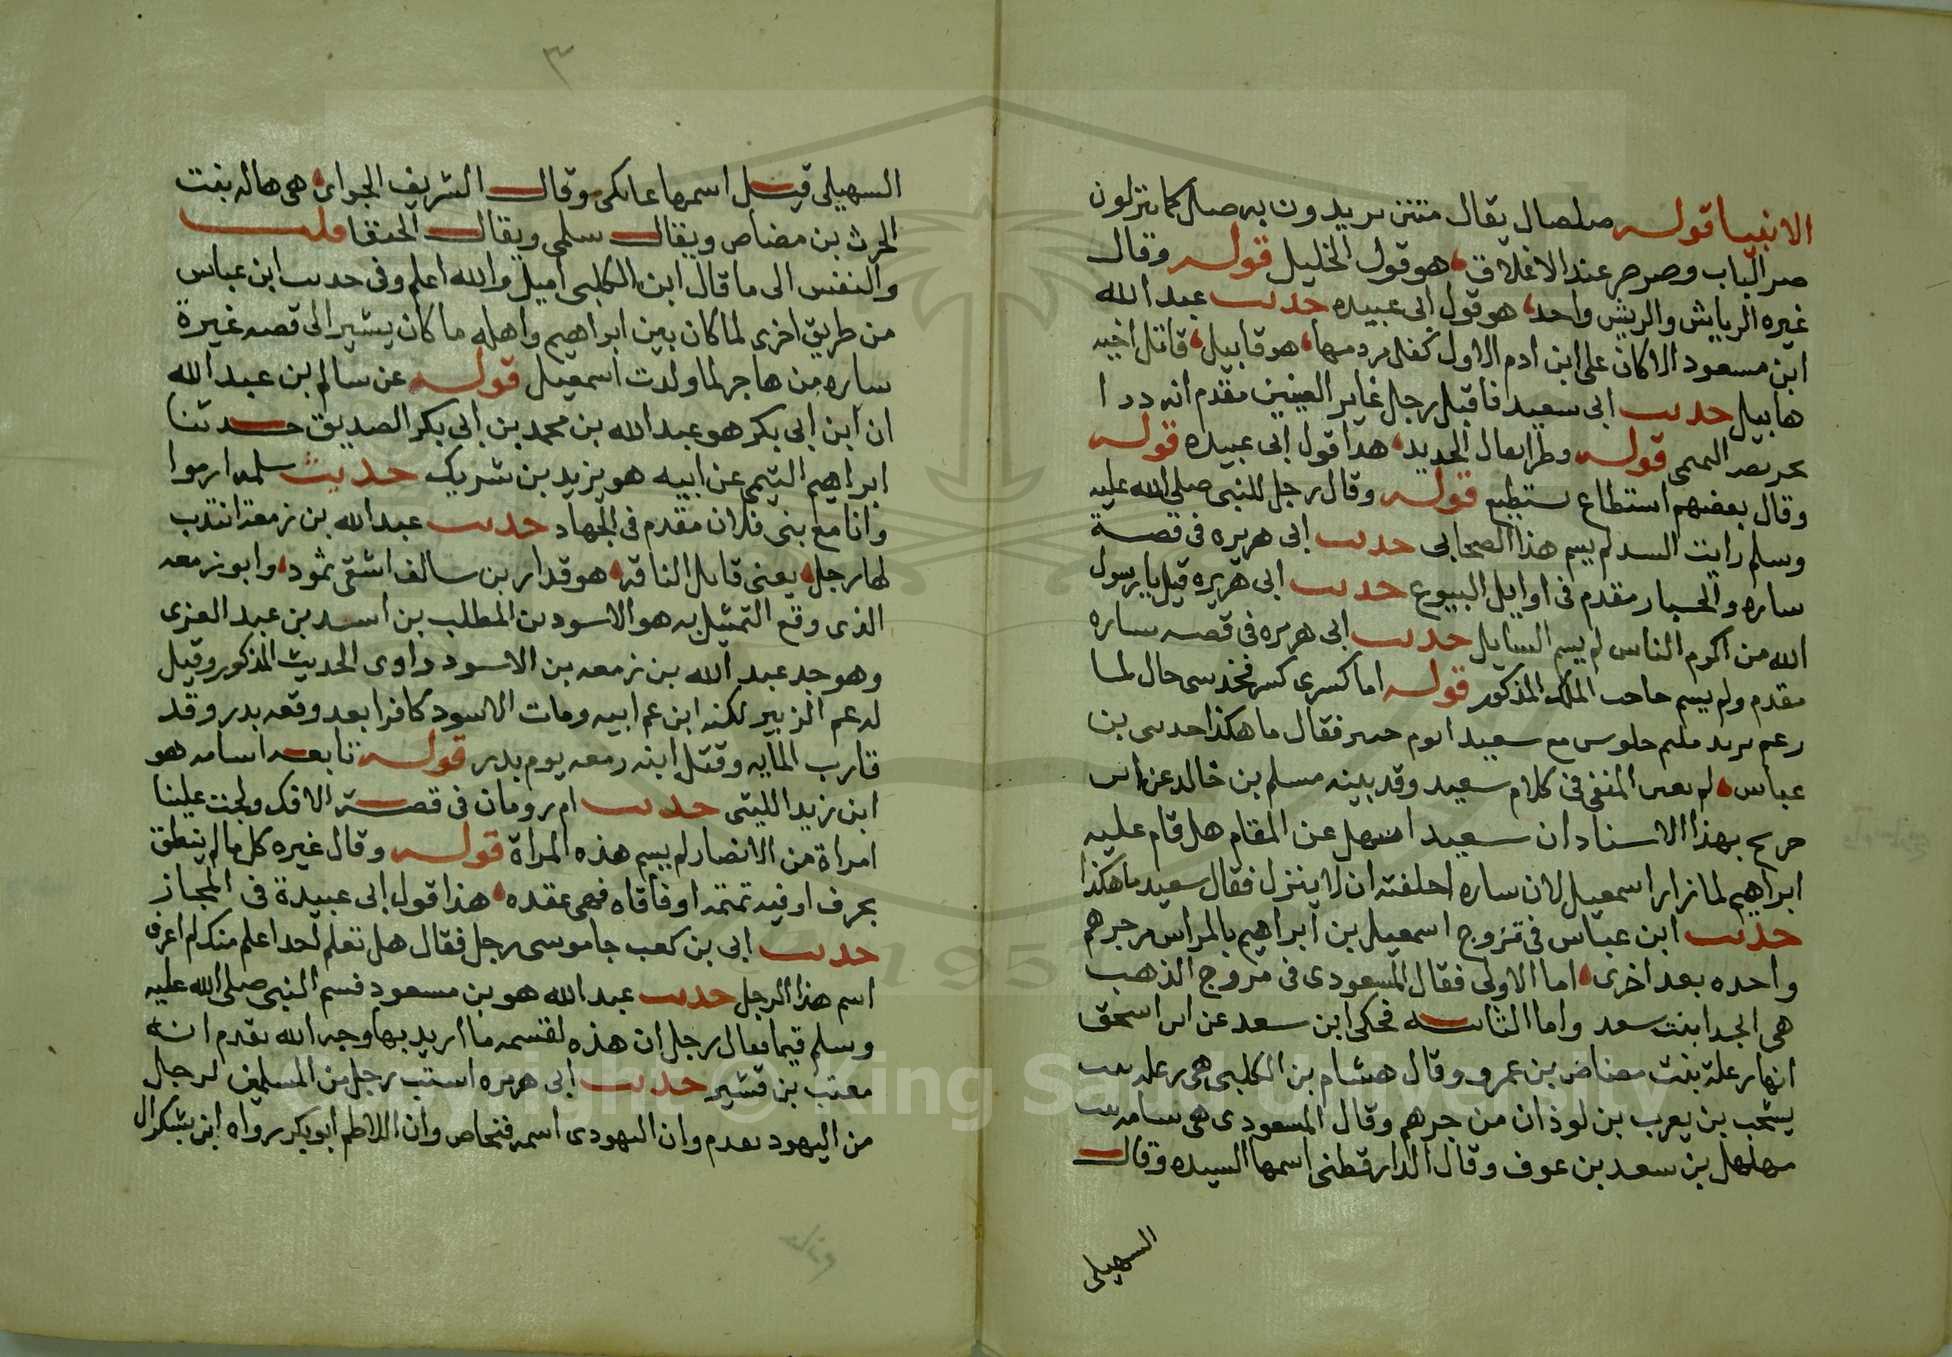 الانبيا قوله صلصال يقال منتن يريدون به صل كما تنزلون
صر الباب وصرصر عند الاغلاق هو قول الخليل قوله وقال
غيره الرياش والريش واحد هو قول ابى عبيده حديث عبد الله
ابن مسعود الا كان على ابن ادم الاول كفل من دمها هو قابيل قاتل اخيه
هابيل حديث ابى سعيد فاقبل رجل غاير العينين مقدم انه ذو ا
قوله وطرا يقال الحديد هذا قول ابى عبيده قوله
وقال بعضهم استطاع يستطيع قوله وقال رجل للنبى صلى الله عليه
وسلم رايت السد لم يسم هذا الصحابى حديث ابى هريره فى قصة
ساره والجبار مقدم فى اوايل البيوع حديث ابى هريره قيل يا رسول
الله من اكرم الناس لم يسم السايل حديث ابى هريره فى قصه ساره
مقدم ولم يسم صاحب الملك المذكور قوله اما كسرى كسر فحدثنى حال لما
عباس لم يعين المنفى فى كلام سعيد وقد بينه مسلم بن خالد عن ابن
جريج بهذا الاسناد ان سعيدا سهل عن المقام هل قام عليه
ابراهيم لما زار اسمعيل لان ساره احلفته ان لا ينزل فقال سعيد ما هكذا
حديث ابن عباس فى تزوج اسمعيل بن ابراهيم بالمراس من جرهم
واحده بعد اخرى اما الاولى فقال المسعودى فى مروج الذهب
هى الجدا بنت سعد واما الثانيه فحكى ابن سعد عن ابن اسحق
انها رعلة بنت مضاض بن عمرو وقال هشام بن الكلبى هى رعله بنت
يشجب بن يعرب بن لوذان من جرهم وقال المسعودى هى سامه بنت
مهلهل بن سعد بن عوف وقال الدارقطنى اسمها السيده وقال
السهيلى
السهيلى قيل اسمها عاتكه وقال الشريف الجوانى هى هاله بنت
الحرث بن مضاض ويقال سلمى ويقال الحنفا قلت
والنفس الى ما قال ابن الكلبى اميل والله اعلم وفى حديث ابن عباس
من طريق اخرى لما كان بين ابراهيم واهله ما كان يشير الى قصه غيرة
ساره من هاجر لما ولدت اسمعيل قوله عن سالم بن عبد الله
ان ابن ابى بكر هو عبد الله بن محمد بن ابى بكر الصديق حدثنا
ابراهيم التيمى عن ابيه هو يزيد بن شريك حديث سلمه ارموا
وانا مع بنى فلان مقدم فى الجهاد حديث عبد الله بن زمعة انتدب
لها رجل يعنى قاتل الناقه هو قدار بن سالف اشقى ثمود وابو زمعه
الذى وقع التمثيل به هو الاسود بن المطلب بن اسد بن عبد العزى
وهو جد عبد الله بن زمعه بن الاسود راوى الحديث المذكور وقيل
له عم الزبير لكنه ابن عم ابيه ومات الاسود كافرا بعد وقعه بدر وقد
قارب المايه وقتل ابنه زمعه يوم بدر قوله تابعه اسامه هو
ابن زيد الليثى حديث ام رومان فى قصة الافك ولجت علينا
امراة من الانصار لم يسم هذه المراة قوله وقال غيره كل ما لم ينطق
بحرف او فيه تمتمه او فأفاه فهى عقده هذا قول ابى عبيدة فى المجاز
حديث ابى بن كعب جا موسى رجل فقال هل تعلم احدا اعلم منك لم اعرف
اسم هذا الرجل حديث عبد الله هو بن مسعود قسم النبى صلى الله عليه
وسلم قيما فقال رجل ان هذه لقسمه ما اريد بها وجه الله تقدم انه
معتب بن قشير حديث ابى هريره استب رجل من المسلمين لرجل
من اليهود تقدم وان اليهودى اسمه فنحاص وان اللاطم ابو بكر رواه ابن بشكوال